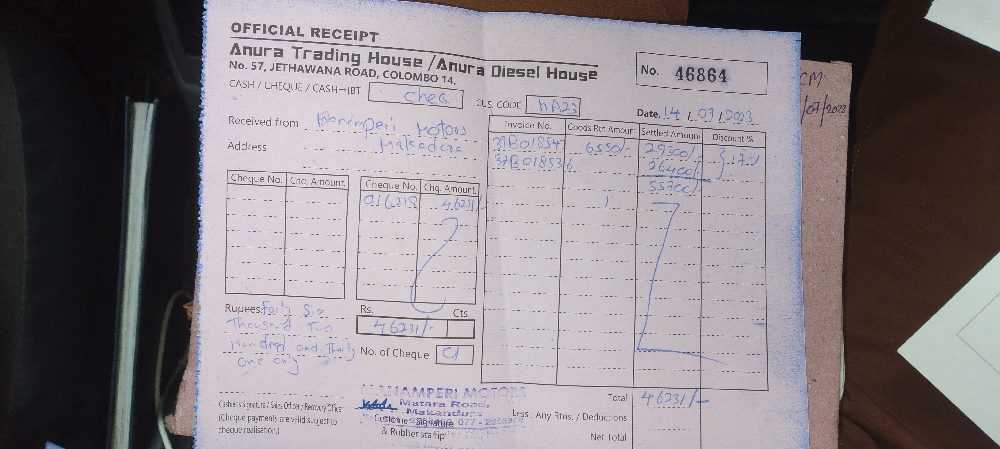 OFFICIAL RECEIPT
Anura Trading House /Anura Diesel House
No. 57, JETHAWANA ROAD, COLOMBO 14.
No. 46864
CASH / CHEQUE / CASH-IBT cheq
CUS. CODE HA23
Date. 14 / 07 / 2023
CM
/07/2023
Received from Motors
Address Makadura
Invoice No. Goods Rtn Amount Settled Amount Discount %
37B018547 6550/- 29300/- 17%
37B018536 26400/-
55700/-
Cheque No. Chq. Amount Cheque No. Chq. Amount
016218 46231/-
Rupees Forty Six
Thousand Two
Hundred and Thirty
One only
Rs. Cts.
46231/-
No. of Cheque 01
Cashier's Signature / Sales Officer / Recovery Officer
(Cheque payments are valid subject to
cheque realisation.)
HAMPERI MOTORS
Matara Road,
Makandura
Customer Signature
& Rubber stamp
Total 46231/-
Less : Any Rtns. / Deductions
Net Total